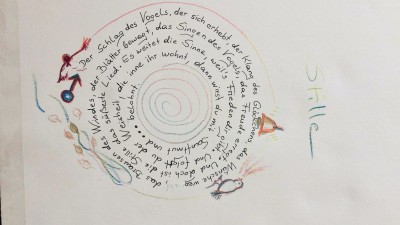 Stille
Der Schlag des Vogels, der sich erhebt der Klang des Glöckchens das Wünsche weg
das Brausen des Windes, der Blätter bewegt, das Singen des Vogels, das Freude erregt. Und doch ist
die Stille das süßeste Lied. Es weitet die Sinne weil's Frieden dir gibt. Und folgst du
der Weisheit, die inne ihr wohnt, dann wirst du mit Sanftmut
belohnt